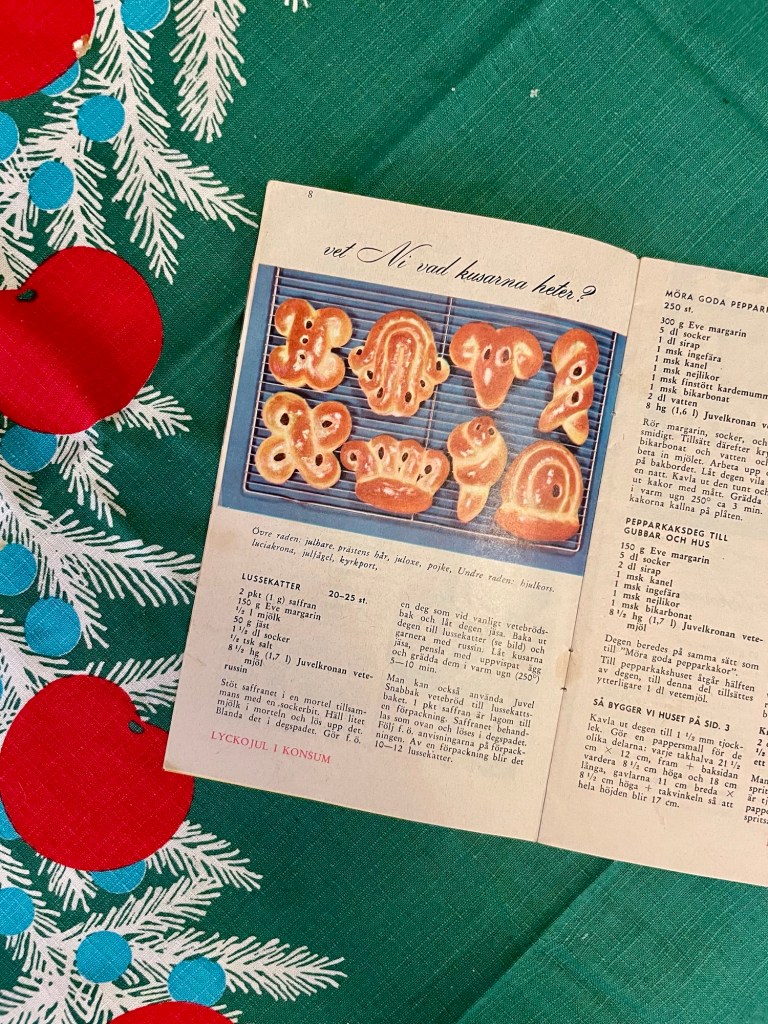 8
vet Ni vad kusarna heter?
Övre raden: julhare, prästens hår, juloxe, pojke, Undre raden: hjulkors,
luciakrona, julfågel, kyrkport,
LUSSEKATTER 20—25 st.
2 pkt (1 g) saffran
150 g Eve margarin
1/2 l mjölk
50 g jäst
1 1/2 dl socker
1/2 tsk salt
8 1/2 hg (1,7 l) Juvelkronan vete-
mjöl
russin
Stöt saffranet i en mortel tillsam-
mans med en sockerbit. Häll litet
mjölk i morteln och lös upp det.
Blanda det i degspadet. Gör f. ö.
en deg som vid vanligt vetebröds-
bak och låt degen jäsa. Baka ut
degen till lussekatter (se bild) och
garnera med russin. Låt kusarna
jäsa, pensla med uppvispat ägg
och grädda dem i varm ugn (250°)
5—10 min.
Man kan också använda Juvel
Snabbak vetebröd till lussekatts-
baket. 1 pkt saffran är lagom till
en förpackning. Saffranet behand-
las som ovan och löses i degspadet.
Följ f. ö. anvisningarna på förpack-
ningen. Av en förpackning blir det
10—12 lussekatter.
LYCKOJUL I KONSUM
MÖRA GODA PEPPARK
250 st.
300 g Eve margarin
5 dl socker
1 dl sirap
1 msk ingefära
1 msk kanel
1 msk nejlikor
1 msk finstött kardemumm
1 msk bikarbonat
2 dl vatten
8 hg (1,6 l) Juvelkronan ve
Rör margarin, socker, och
smidigt. Tillsätt därefter kry
bikarbonat och vatten oc
beta in mjölet. Arbeta upp
på bakbordet. Låt degen vila
en natt. Kavla ut den tunt och
ut kakor med mått. Grädda
i varm ugn 250° ca 3 min.
kakorna kallna på plåten.
PEPPARKAKSDEG TILL
GUBBAR OCH HUS
150 g Eve margarin
5 dl socker
2 dl sirap
1 msk kanel
1 msk ingefära
1 msk nejlikor
1 msk bikarbonat
8 1/2 hg (1,7 l) Juvelkronan vete-
mjöl
Degen beredes på samma sätt som
till "Möra goda pepparkakor".
Till pepparkakshuset åtgår hälften
av degen, till denna del tillsättes
ytterligare 1 dl vetemjöl.
SÅ BYGGER VI HUSET PÅ SID. 3
Kavla ut degen till 1 1/2 mm tjock-
lek. Gör en pappersmall för de
olika delarna: varje takhalva 21 1/2
cm × 12 cm, fram + baksidan
vardera 8 1/2 cm höga och 18 cm
långa, gavlarna 11 cm breda ×
8 1/2 cm höga + takvinkeln så att
hela höjden blir 17 cm.